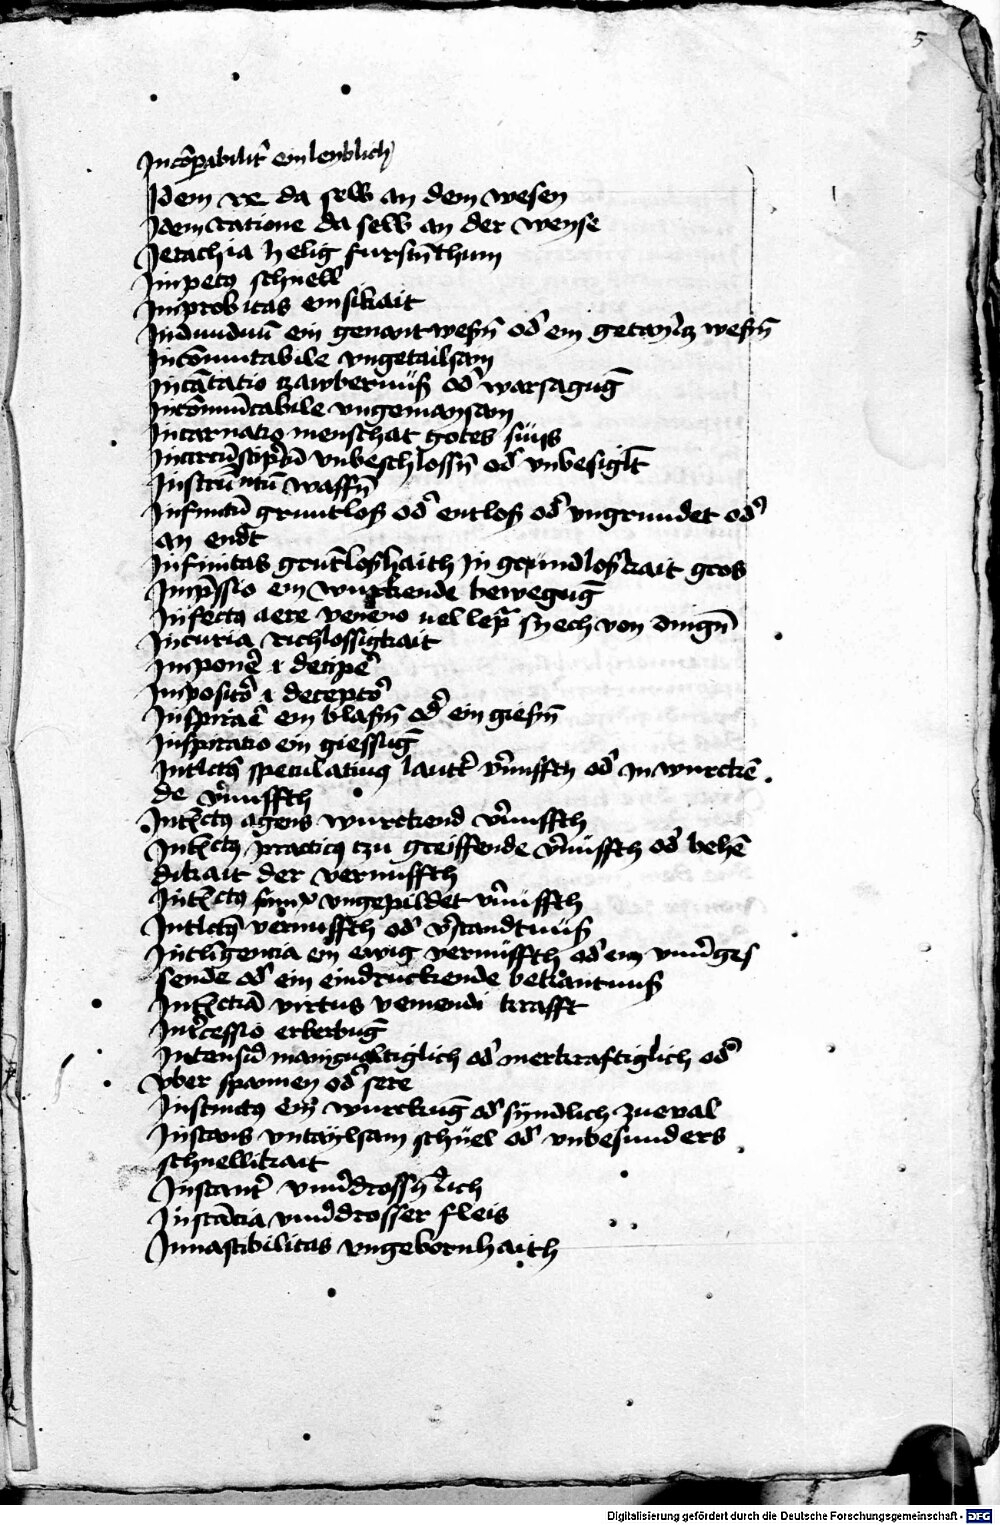 5
Incōpabilit̉ einlenblich
Idem re da selb an dem wesen
Idem ratione da selb an der weyse
Jerachia helig furstn̄thum
Impetꝰ schnell
Improbitas emsikait
Indiuiduū ein genant wesn̄ od̉ ein wesn̄
Incōmutabile vngetailsam
Incātatio czawbernüß od̉ warsagūg
Incōmūicabile vngemaynsam
Incarnatio menschhat gotes süns
vnbeschlossn̄ od̉ vnbesiglt̄
Instrūmtū waffn̄
Infinitū gruntloß od̉ entloß od̉ vngrundet od̉
an endt
Infinitas grūtloßhaith In gründloßkait gros
Imp̄ssio ein wurckende bewegūg
Infectꝰ aere veneno uel lep̄ syech von dingn̄
Incuria richlossigkait
Imponē i decipē
Impositō i deceptō
Inspirāē ein blasn̄ od̉ ein giesn̄
Inspiratio ein giessūg
Intl̄ctꝰ speculatiuꝰ lautt̉ v̉nufft od̉ In wurckē
de v̉nuffth
Intl̄ctꝰ agens wurckend v̉nuffth
Intl̄ctꝰ practicꝰ czu greiffende v̉nüffth od̉ behē
dikait der vernuffth
Intl̄ctꝰ vngepildet v̉nüffth
Intl̄ctꝰ vernuffth od̉ v̉standtnüß
Intl̄igencia ein ewig vernüffth od̉ ein
sende od̉ ein eindruckende bekantnuß
Intl̄ctiā virtus vernendi krafft
Int̉cessio erberbūg
Intensiū manigualtiglich od̉ merkraftiglich od̉
vber spannen od̉ sere
Instinctꝰ ein wurckūg od̉ sündlich zueval
Instans vntaylsam schüel od̉ vnbesunders
schnellikait
Instant̉ vnủdrossn̄lich
Instācia vnủdrosser fleis
Innascibilitas vngebornhaith
Digitalisierung gefördert durch die Deutsche Forschungsgemeinschaft - DFG